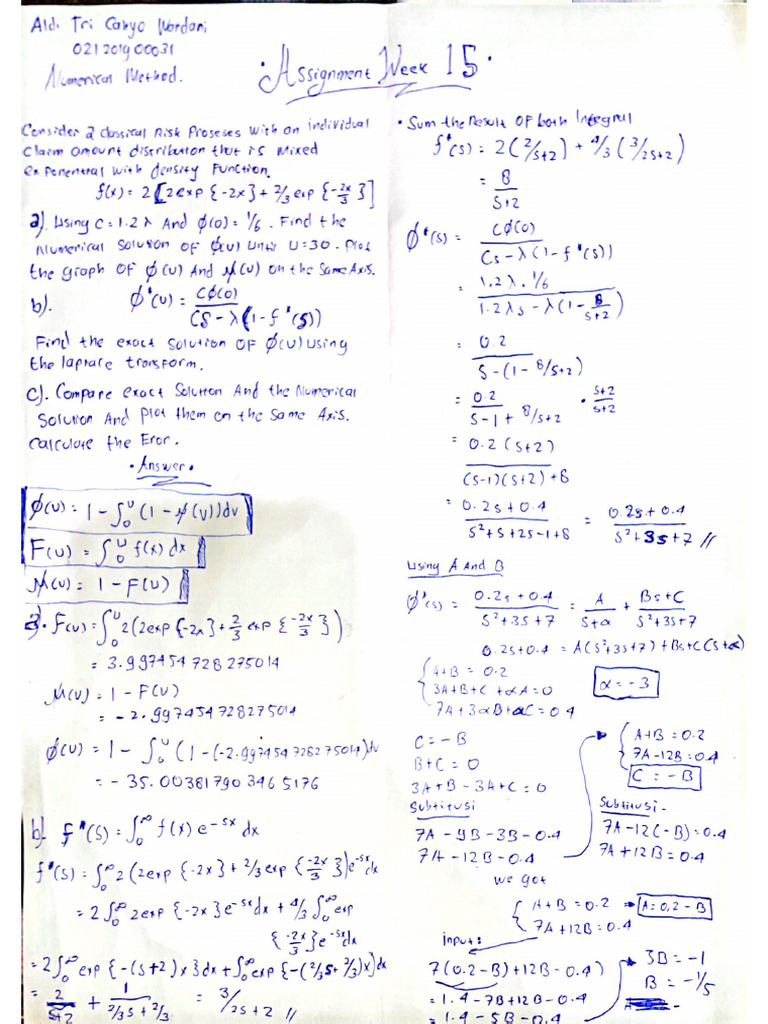 Aldi Tri Cahyo Wardani
02120190031
Numerical Method.
• Assignment Week 15 •
Consider 2 classical Risk Proseses with an individual
Claim amount distribution that is Mixed
exponentral with density Function.
f(x) = 2[2exp{-2x}+2/3 exp{-2x/3}]
a) Using C = 1.2λ And ϕ(0) = 1/6 . Find the
Numerical Solution OF ϕ(u) Until U=30. Plot
the graph OF ϕ(u) And ψ(u) on the Same Axis.
b). ϕ*(u) = Cϕ(0) / CS - λ(1-f*(s))
Find the exact solution OF ϕ(u) Using
the laplace transform.
C). Compare exact Solution And the Numerical
Solution And Plot them on the Same Axis.
Calculate the Eror.
• Answer •
ϕ(u) = 1 - ∫₀ᵁ (1 - ψ(v)) dv
F(u) = ∫₀ᵁ f(x) dx
ψ(u) = 1 - F(u)
a). F(u) = ∫₀ᵁ 2(2exp{-2x}+2/3 exp{-2x/3})
= 3.997454728275014
ψ(u) = 1 - F(u)
= -2.997454728275014
ϕ(u) = 1 - ∫₀ᵁ (1-(-2.997454728275014) dv
= -35.003817903465176
b). f*(s) = ∫₀^∞ f(x) e^-sx dx
f*(s) = ∫₀^∞ 2(2exp{-2x}+2/3 exp{-2x/3}) e^-sx dx
= 2∫₀^∞ 2exp{-2x}e^-sx dx + 4/3 ∫₀^∞ exp
{-2x/3}e^-sx dx
= 2∫₀^∞ exp{-(s+2)x}dx + ∫₀^∞ exp{-(2/3s+2/3)x}dx
= 2/s+2 + 1/2/3s+2/3 = 3/2s+2 //
• Sum the Result OF both Integral
f*(s) = 2(2/s+2) + 4/3 (3/2s+2)
= 8/s+2
ϕ*(s) = Cϕ(0) / Cs - λ(1-f*(s))
= 1.2λ . 1/6 / 1.2λs - λ(1-8/s+2)
= 0.2 / s-(1-8/s+2)
= 0.2 / s-1+8/s+2 • s+2/s+2
= 0.2(s+2) / (s-1)(s+2)+8
= 0.2s+0.4 / s²+s+2s-1+8 = 0.2s+0.4 / s²+3s+7 //
Using A And B
ϕ*(s) = 0.2s+0.4 / s²+3s+7 = A/s+α + Bs+C / s²+3s+7
0.2s+0.4 = A(s²+3s+7)+Bs+C(s+α)
A+B = 0.2
3A+B+C+αA = 0
7A+3αB+αC = 0.4
α = -3
C = -B
B+C = 0
3A+B-3A+C = 0
Subtitusi
7A-9B-3B-0.4
7A-12B-0.4
A+B = 0.2
7A-12B = 0.4
C = -B
Subtitusi -
7A-12(-B) = 0.4
7A+12B = 0.4
we got
A+B = 0.2 → A = 0.2-B
7A+12B = 0.4
input:
7(0.2-B)+12B-0.4)
= 1.4-7B+12B-0.4
= 1.4-5B-0.4
3B = -1
B = -1/5